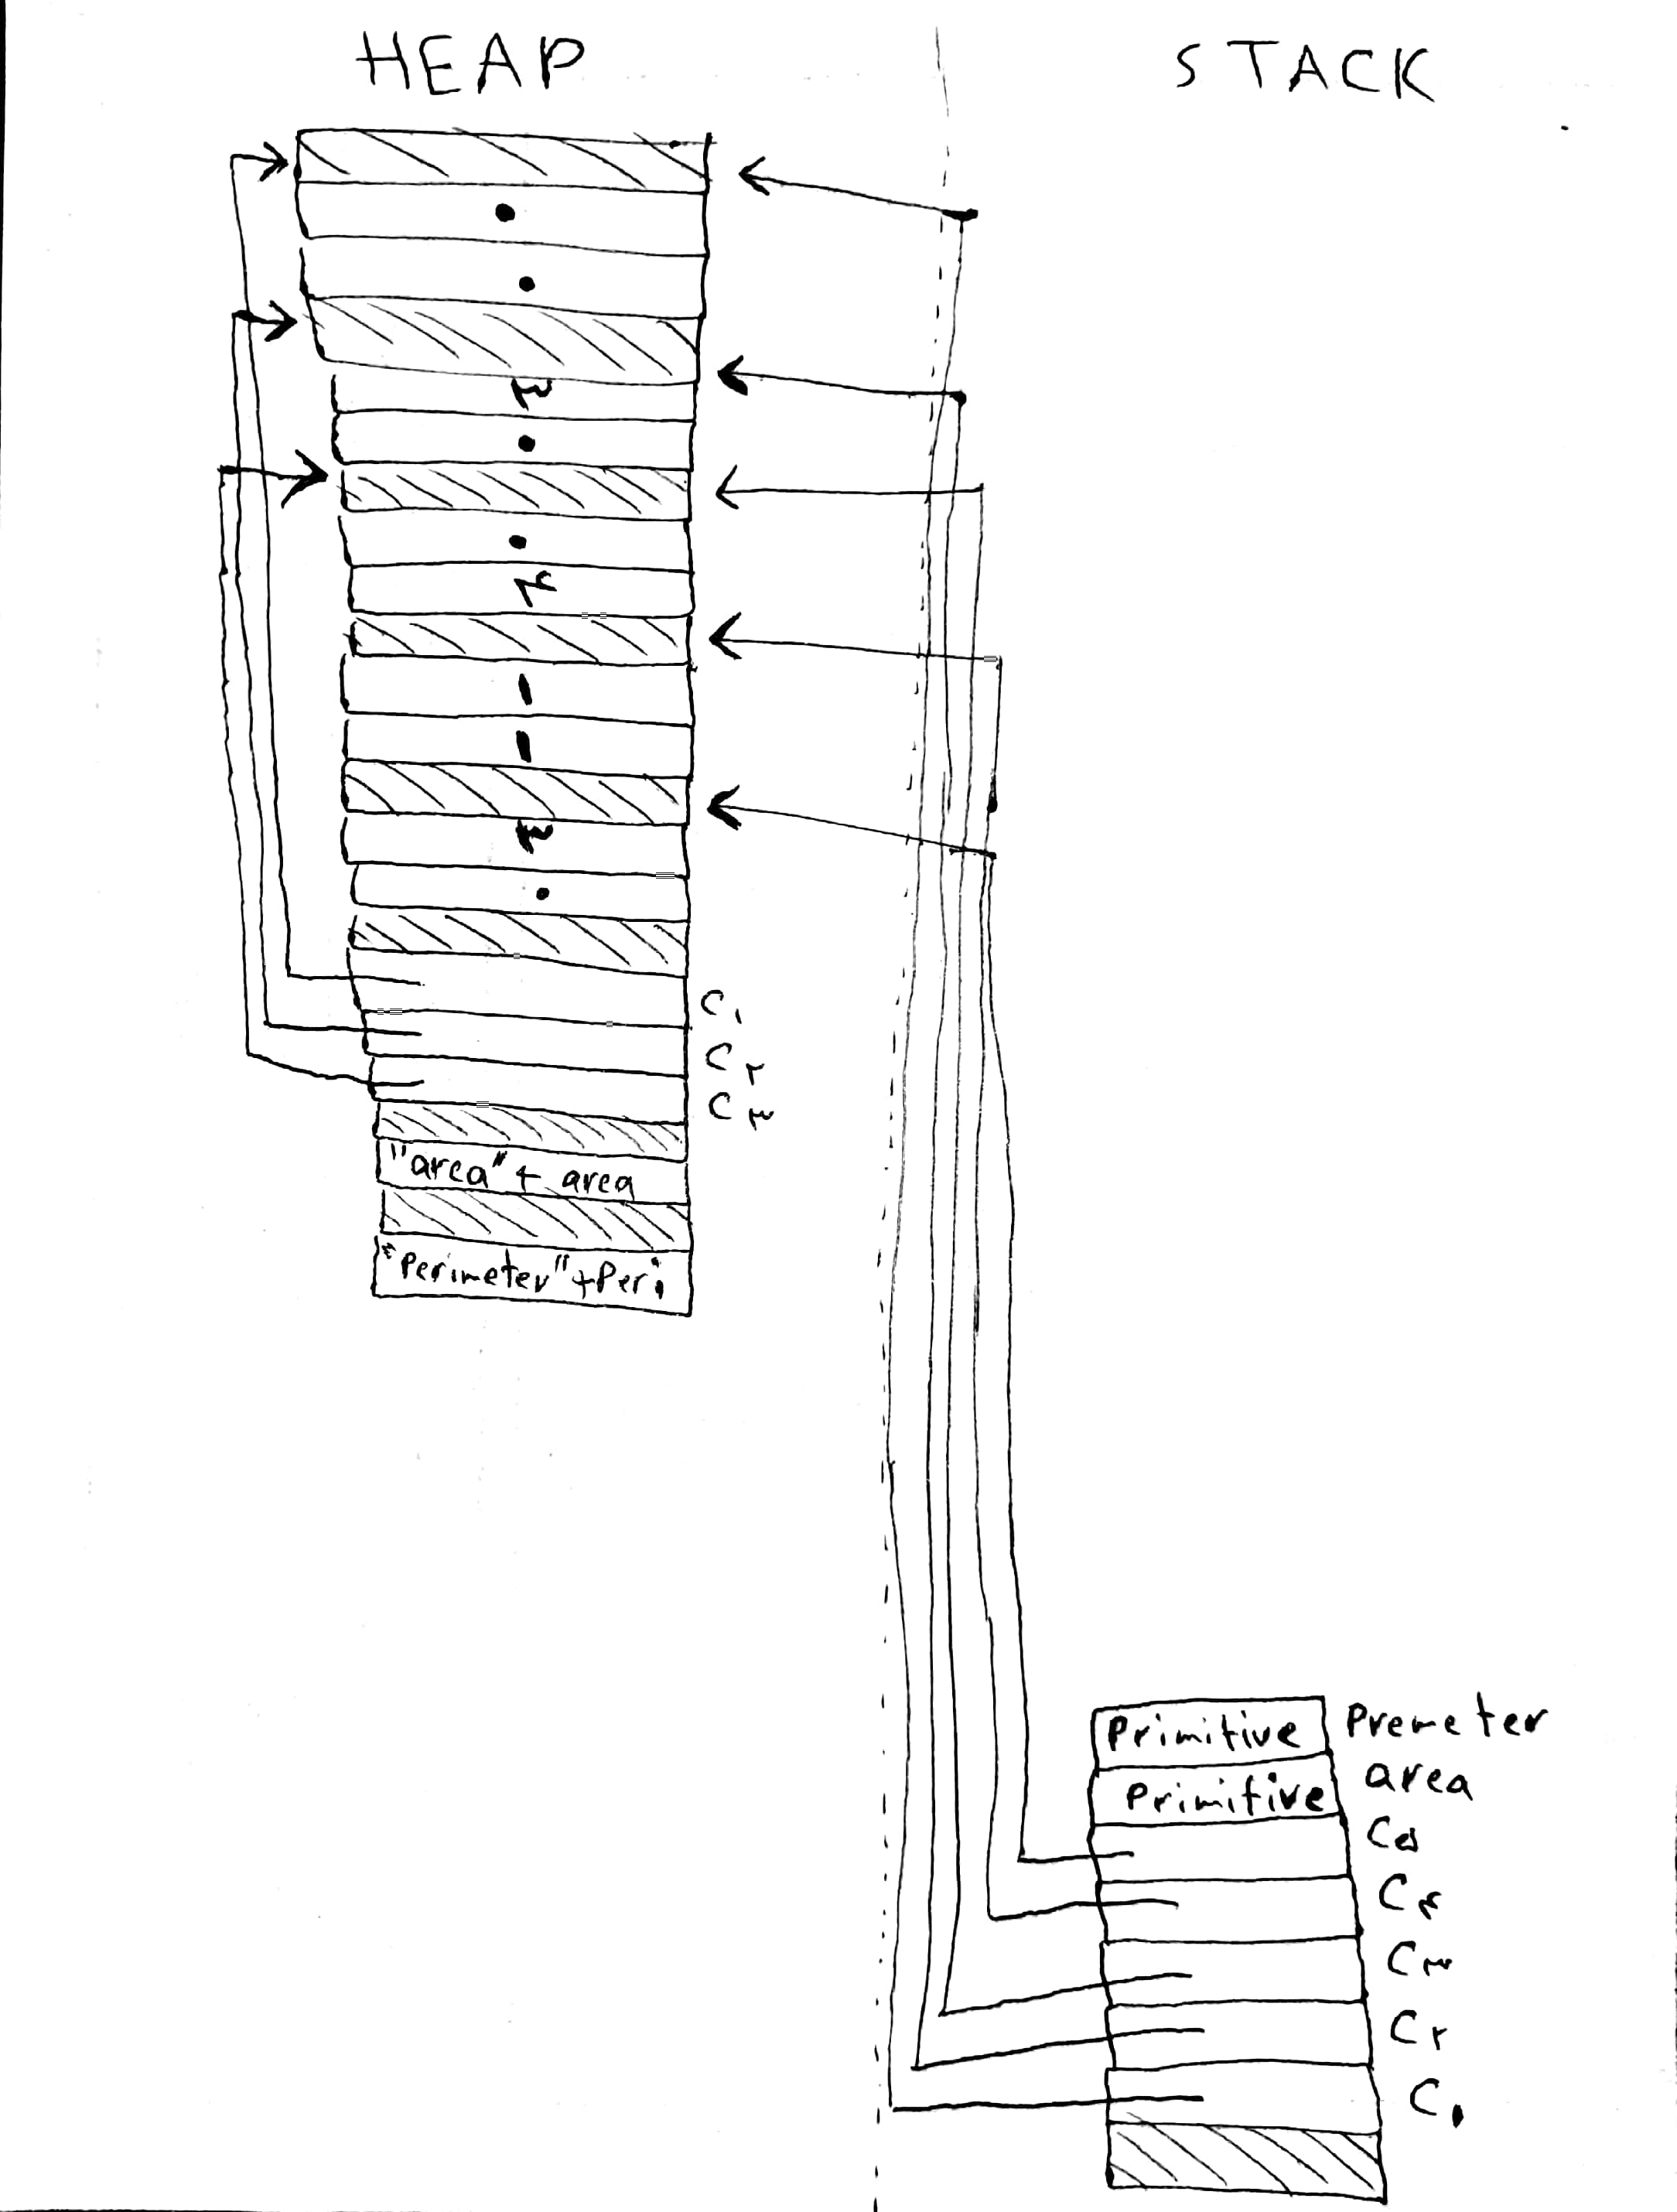 HEAP
STACK
۰
۰
۳
۰
۰
۴
۱
۱
۳
۰
C۱
C۲
C۳
"area" + area
"Perimeter" + Peri
Primitive Premeter
Primitive area
C۵
C۴
C۳
C۲
C۱